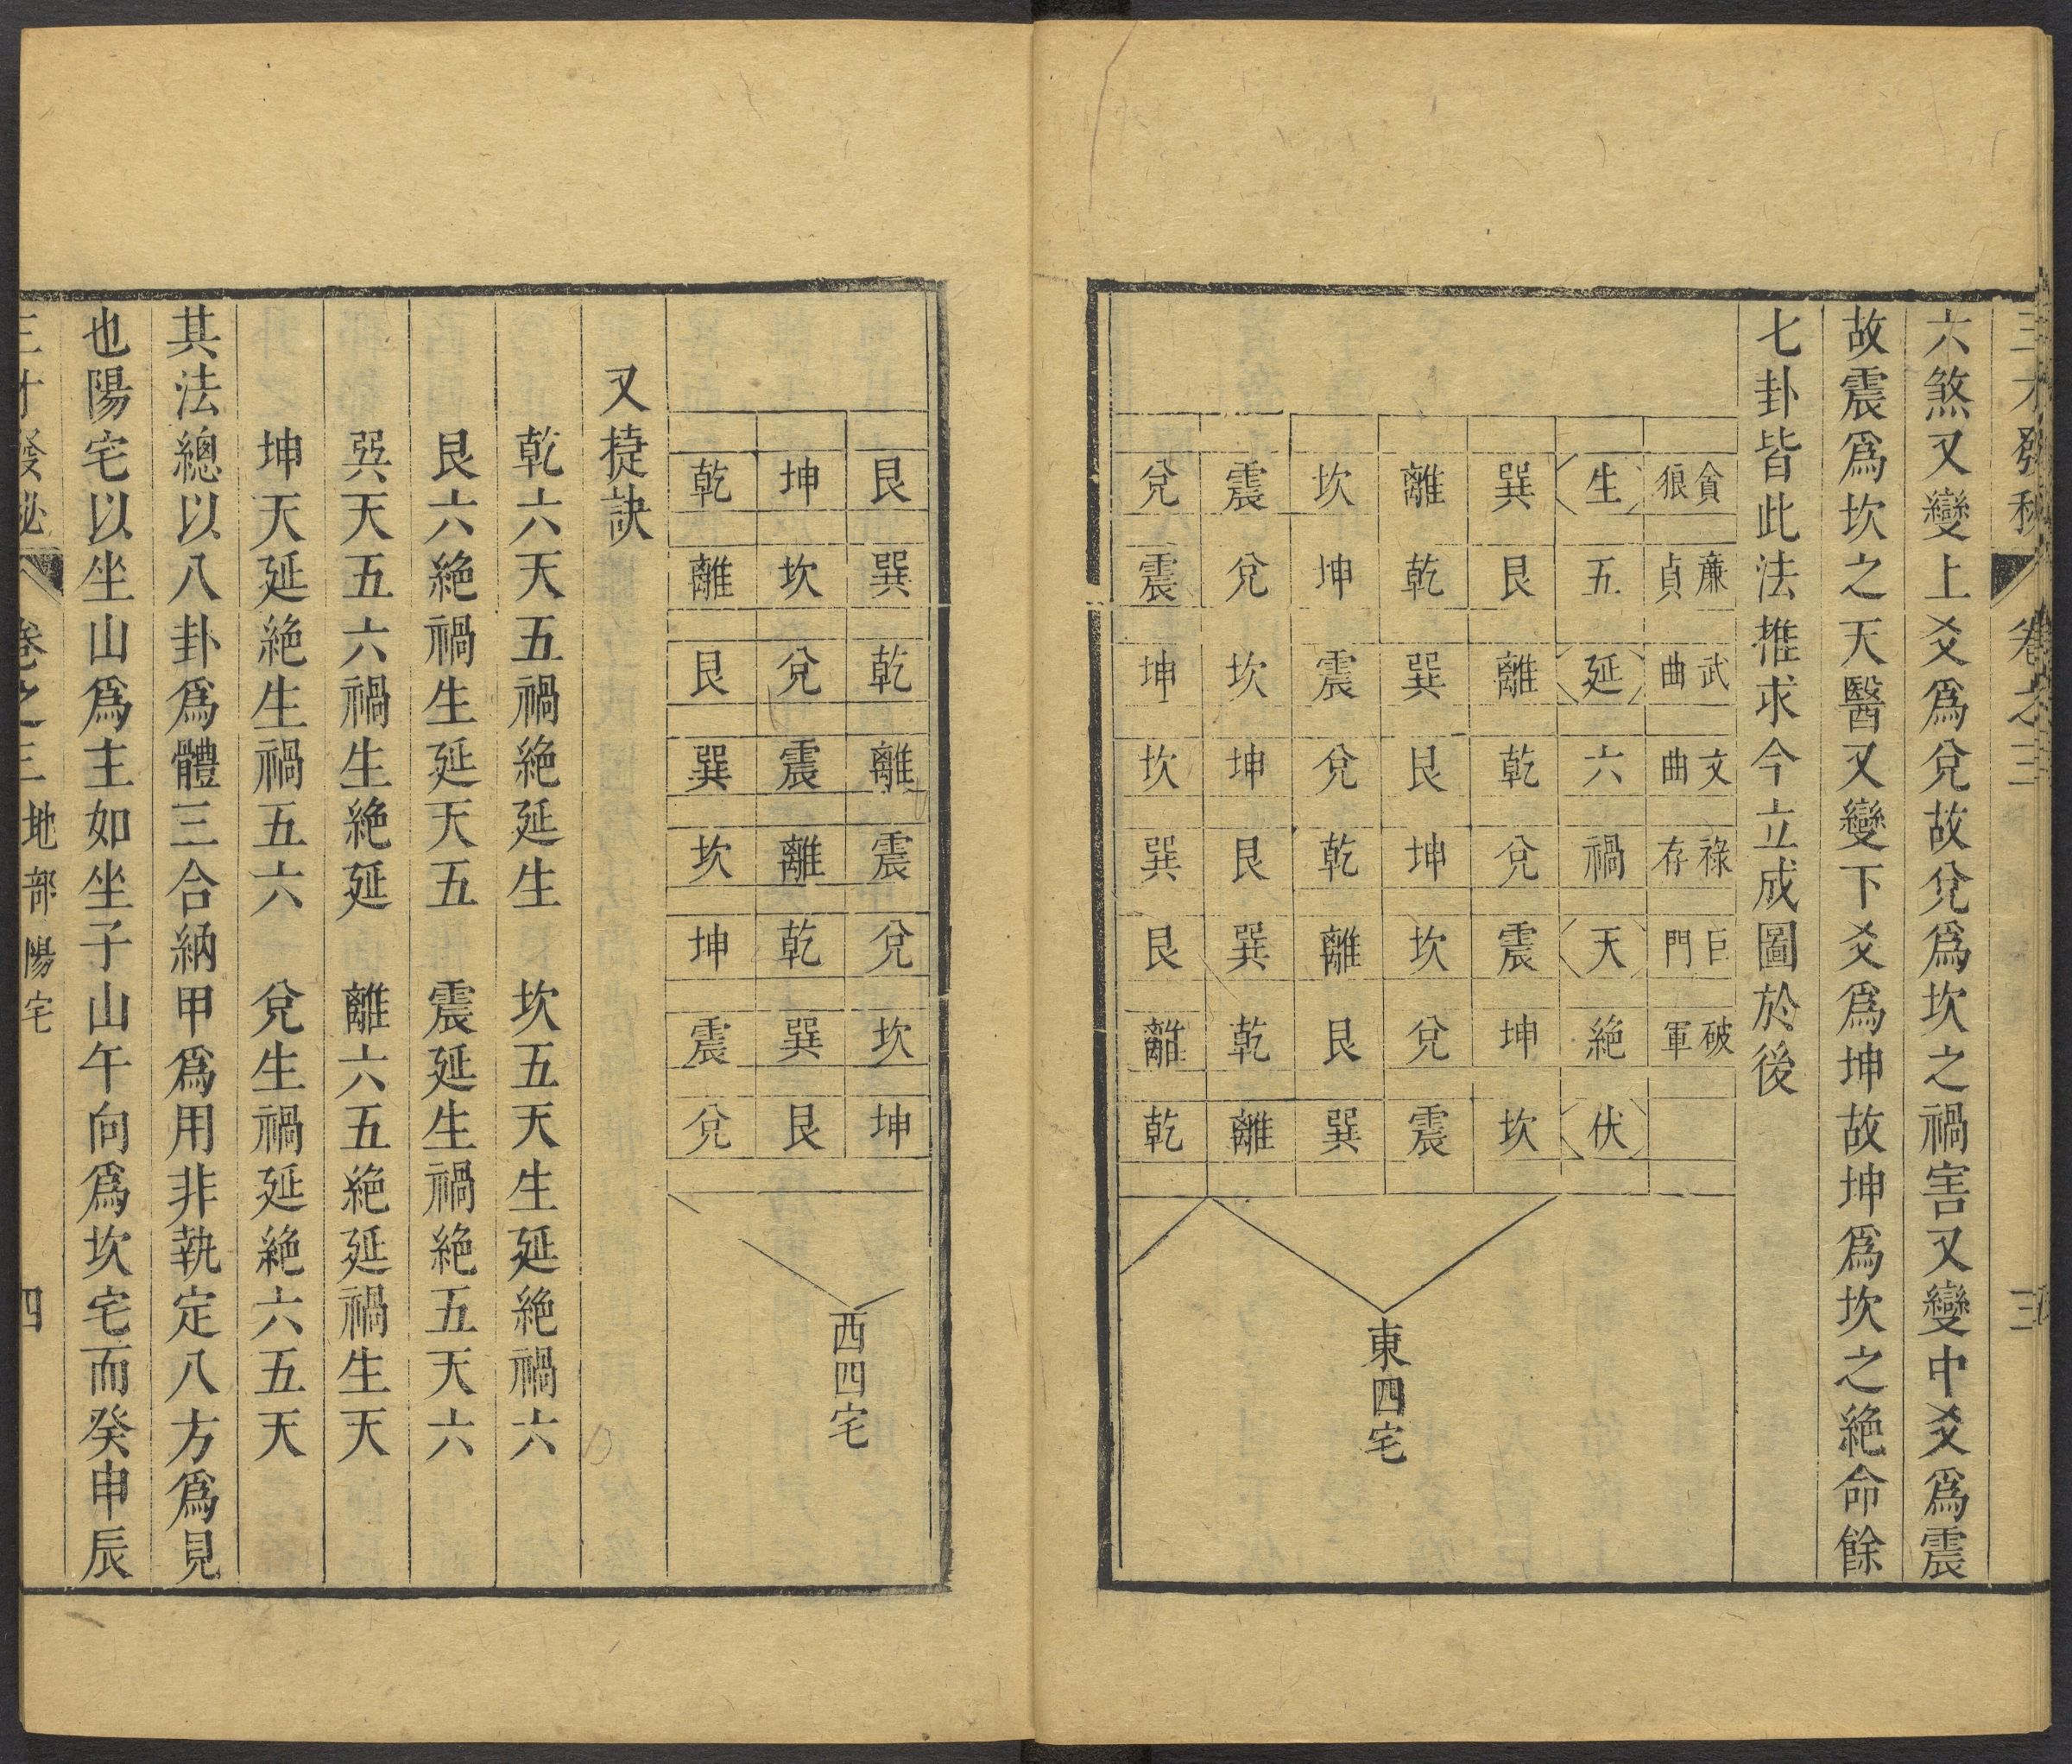 三才發秘　卷之三　三
六煞又變上爻爲兌故兌爲坎之禍害又變中爻爲震
故震爲坎之天醫又變下爻爲坤故坤爲坎之絕命餘
七卦皆此法推求今立成圖於後
貪狼　廉貞　武曲　文曲　祿存　巨門　破軍
生　五　延　六　禍　天　絕　伏
巽　艮　離　乾　兌　震　坤　坎
離　乾　巽　艮　坤　坎　兌　震
坎　坤　震　兌　乾　離　艮　巽
震　兌　坎　坤　艮　巽　乾　離
兌　震　坤　坎　巽　艮　離　乾
東四宅
艮　巽　乾　離　震　兌　坎　坤
坤　坎　兌　震　離　乾　巽　艮
乾　離　艮　巽　坎　坤　震　兌
西四宅
又㨗訣
乾六天五禍絕延生　坎五天生延絕禍六
艮六絕禍生延天五　震延生禍絕五天六
巽天五六禍生絕延　離六五絕延禍生天
坤天延絕生禍五六　兌生禍延絕六五天
其法總以八卦爲體三合納甲爲用非執定八方爲見
也陽宅以坐山爲主如坐子山午向爲坎宅而癸申辰
三才發秘　卷之三　地部　陽宅　四